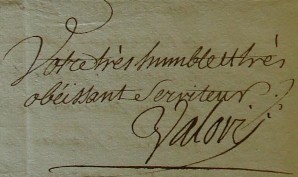 Votre très humble et très
obéissant serviteur.
Valori